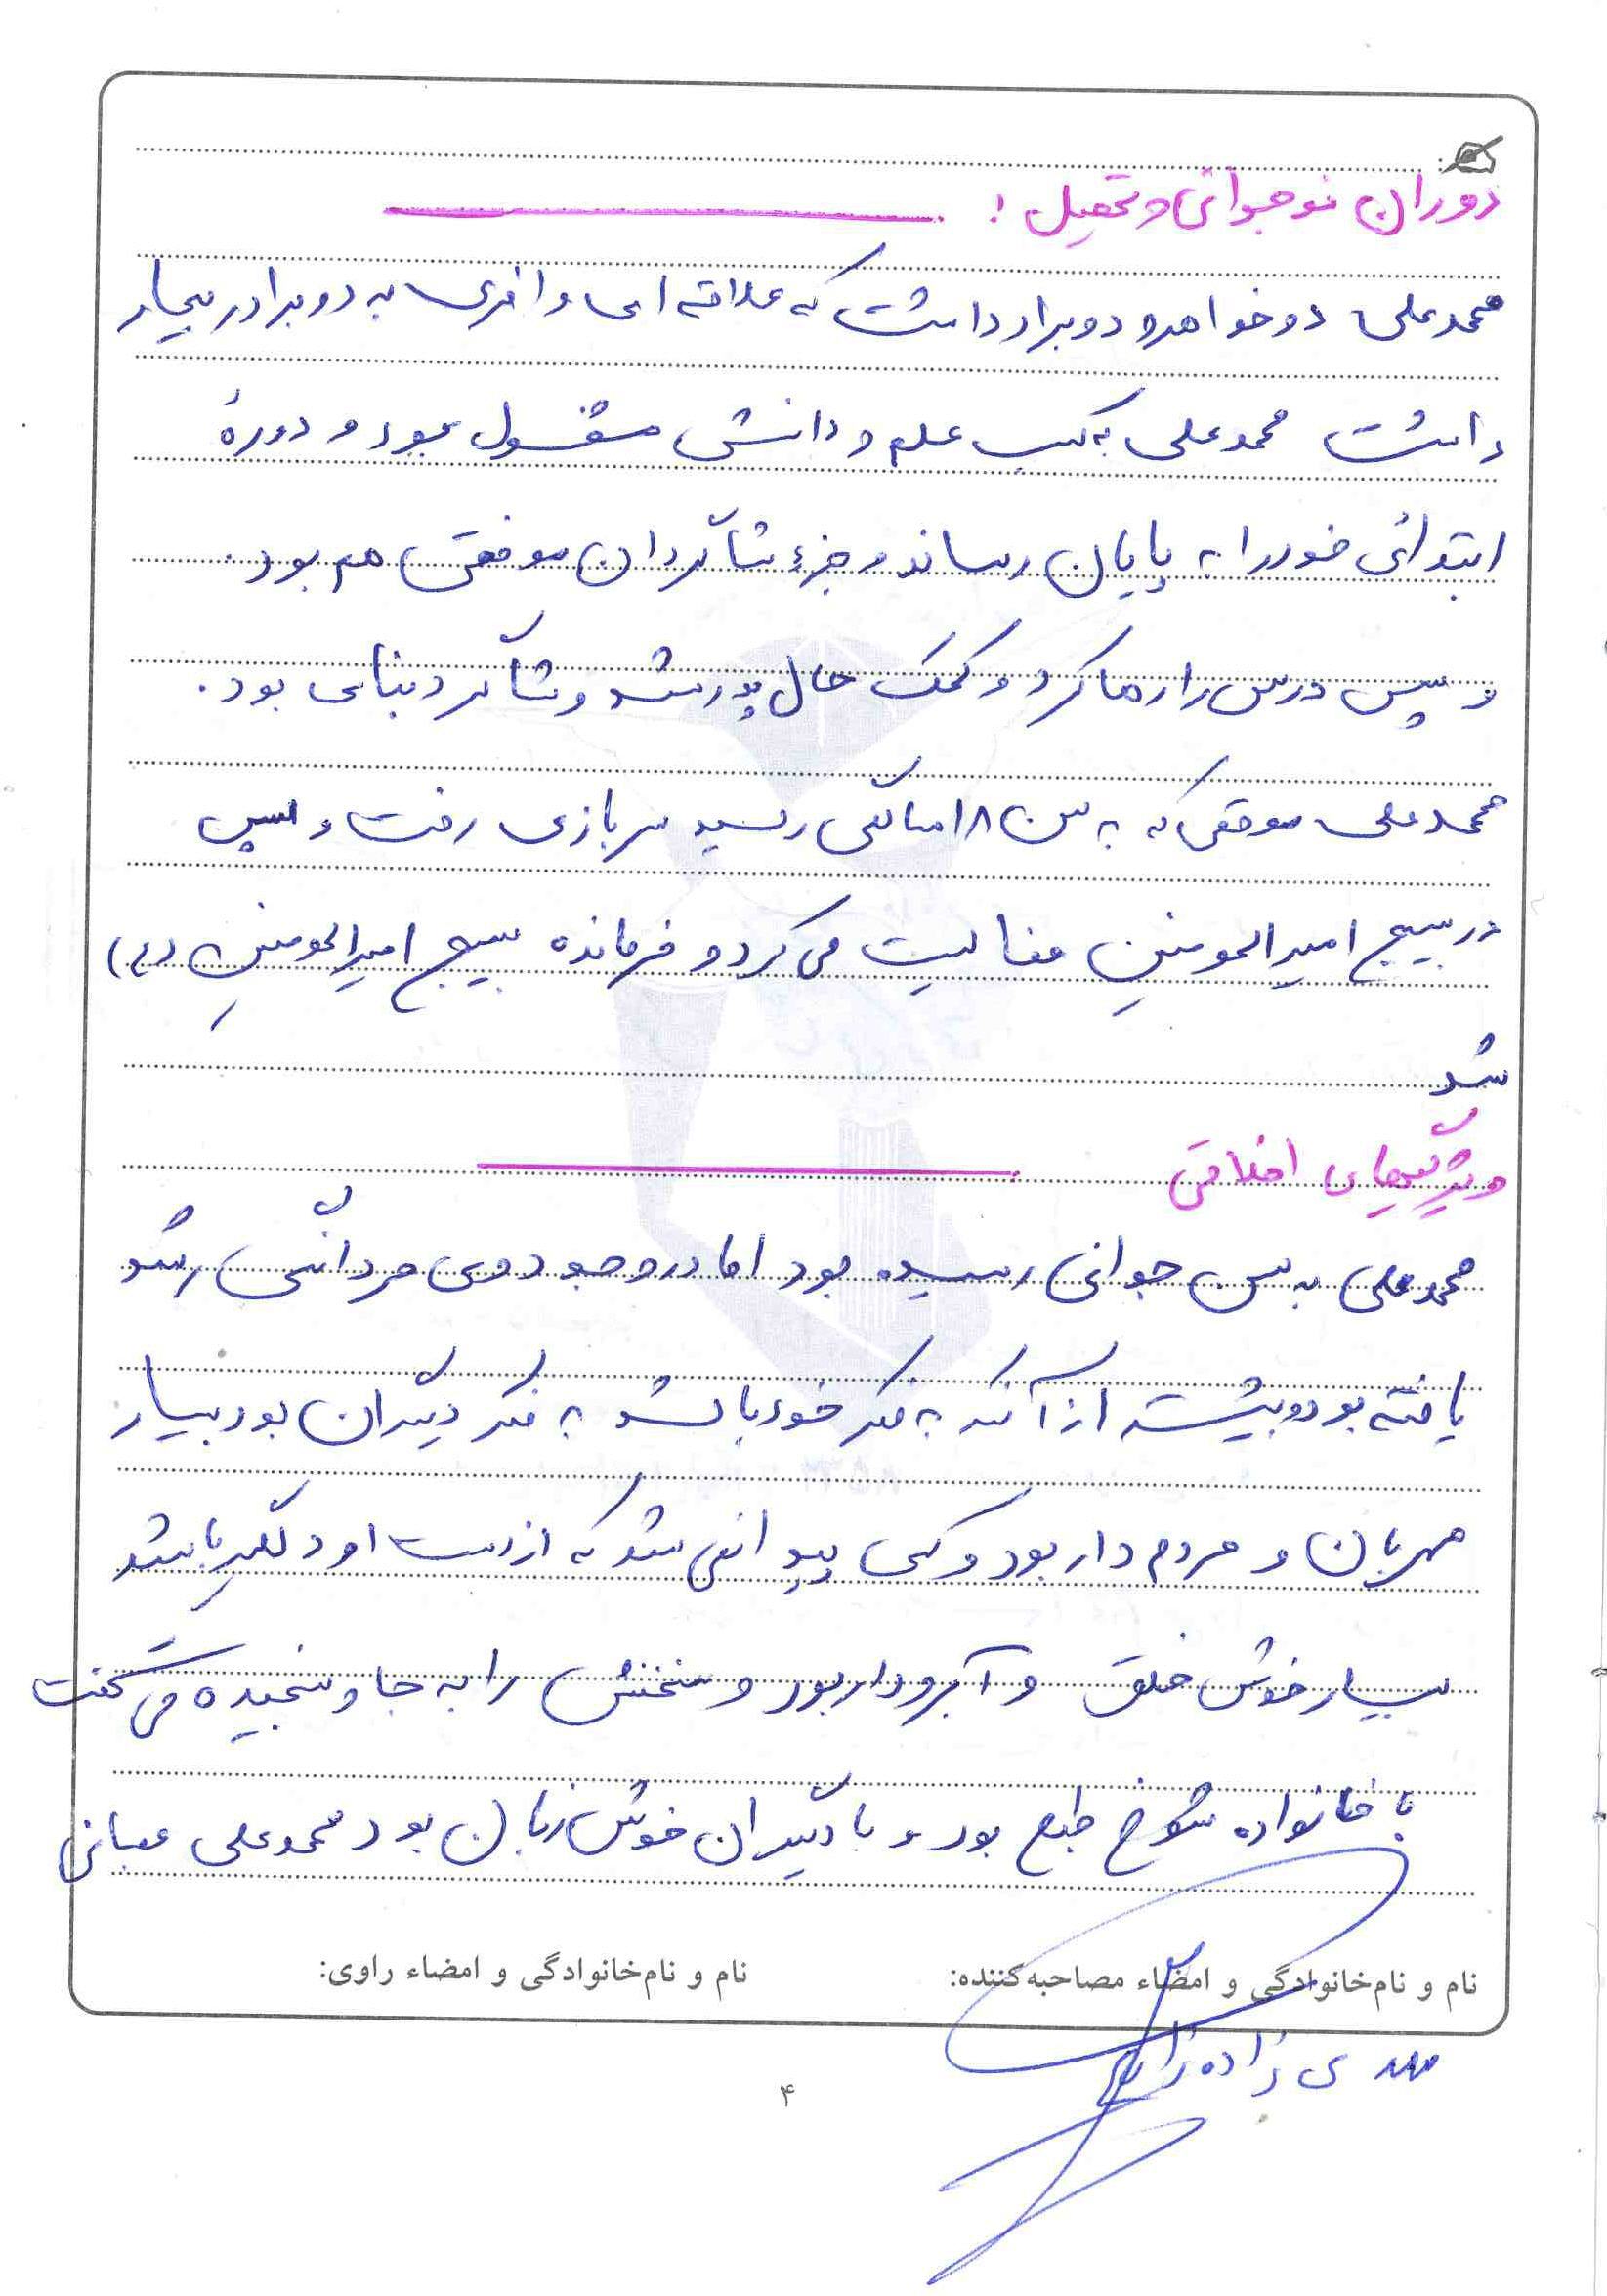 دوران نوجوانی و تحصیل :
محمدعلی دو خواهر و دو برادر داشت که علاقه ای وافری به دو برادر بیمار
داشت محمدعلی به کسب علم و دانش مشغول بود و دورهٔ
ابتدائی خود را به پایان رساند و جزء شاگردان موفقی هم بود.
و سپس درس را رها کرد و کمک حال پدر شد و شاگرد بنای بود.
محمدعلی موقعی که به سن ۱۸ سالگی رسید سربازی رفت و سپس
در بسیج امیرالمومنین فعالیت می کرد و فرمانده بسیج امیرالمومنین (ع)
شد
ویژگیهای اخلاقی
محمدعلی به سن جوانی رسیده بود اما در وجود وی مردانگی رشد
یافته بود و بیشتر از آنکه به فکر خود باشد به فکر دیگران بود بسیار
مهربان و مردم دار بود و کسی پیدا نمی شد که از دست او دلگیر باشد
بسیار خوش خلق و آبرودار بود و سخنش را به جا و سنجیده می گفت
با خانواده شوخ طبع بود و با دیگران خوش زبان بود محمدعلی معیانی
نام و نام‌خانوادگی و امضاء مصاحبه‌کننده: نام و نام‌خانوادگی و امضاء راوی:
زاده
۴